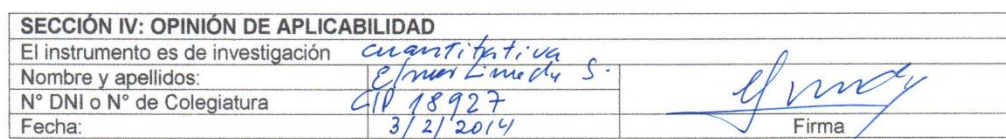 SECCIÓN IV: OPINIÓN DE APLICABILIDAD
El instrumento es de investigación cuantitativa
Nombre y apellidos: S.
N° DNI o N° de Colegiatura CIP 18927
Fecha: 3/2/2014
Firma